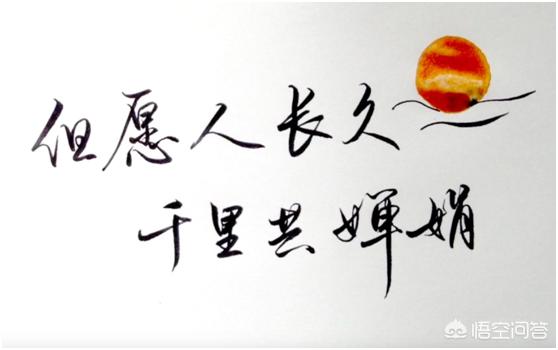 但愿人长久
千里共婵娟
悟空问答